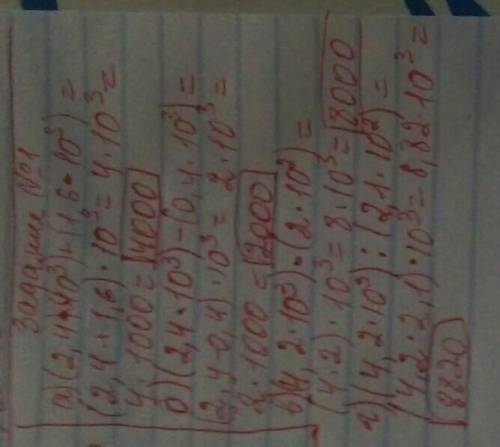 Задание №1
а) (2,4·10³)+(1,6·10³)=
(2,4+1,6)·10³=4·10³=
4·1000=4000
б) (2,4·10³)-(0,4·10³)=
(2,4-0,4)·10³=2·10³=
2·1000=2000
в) (4,2·10³)·(2·10²)=
(4·2)·10³=8·10³=8000
г) (4,2·10³):(2,1·10²)=
(4,2·2,1)·10³=8,82·10³=
8820